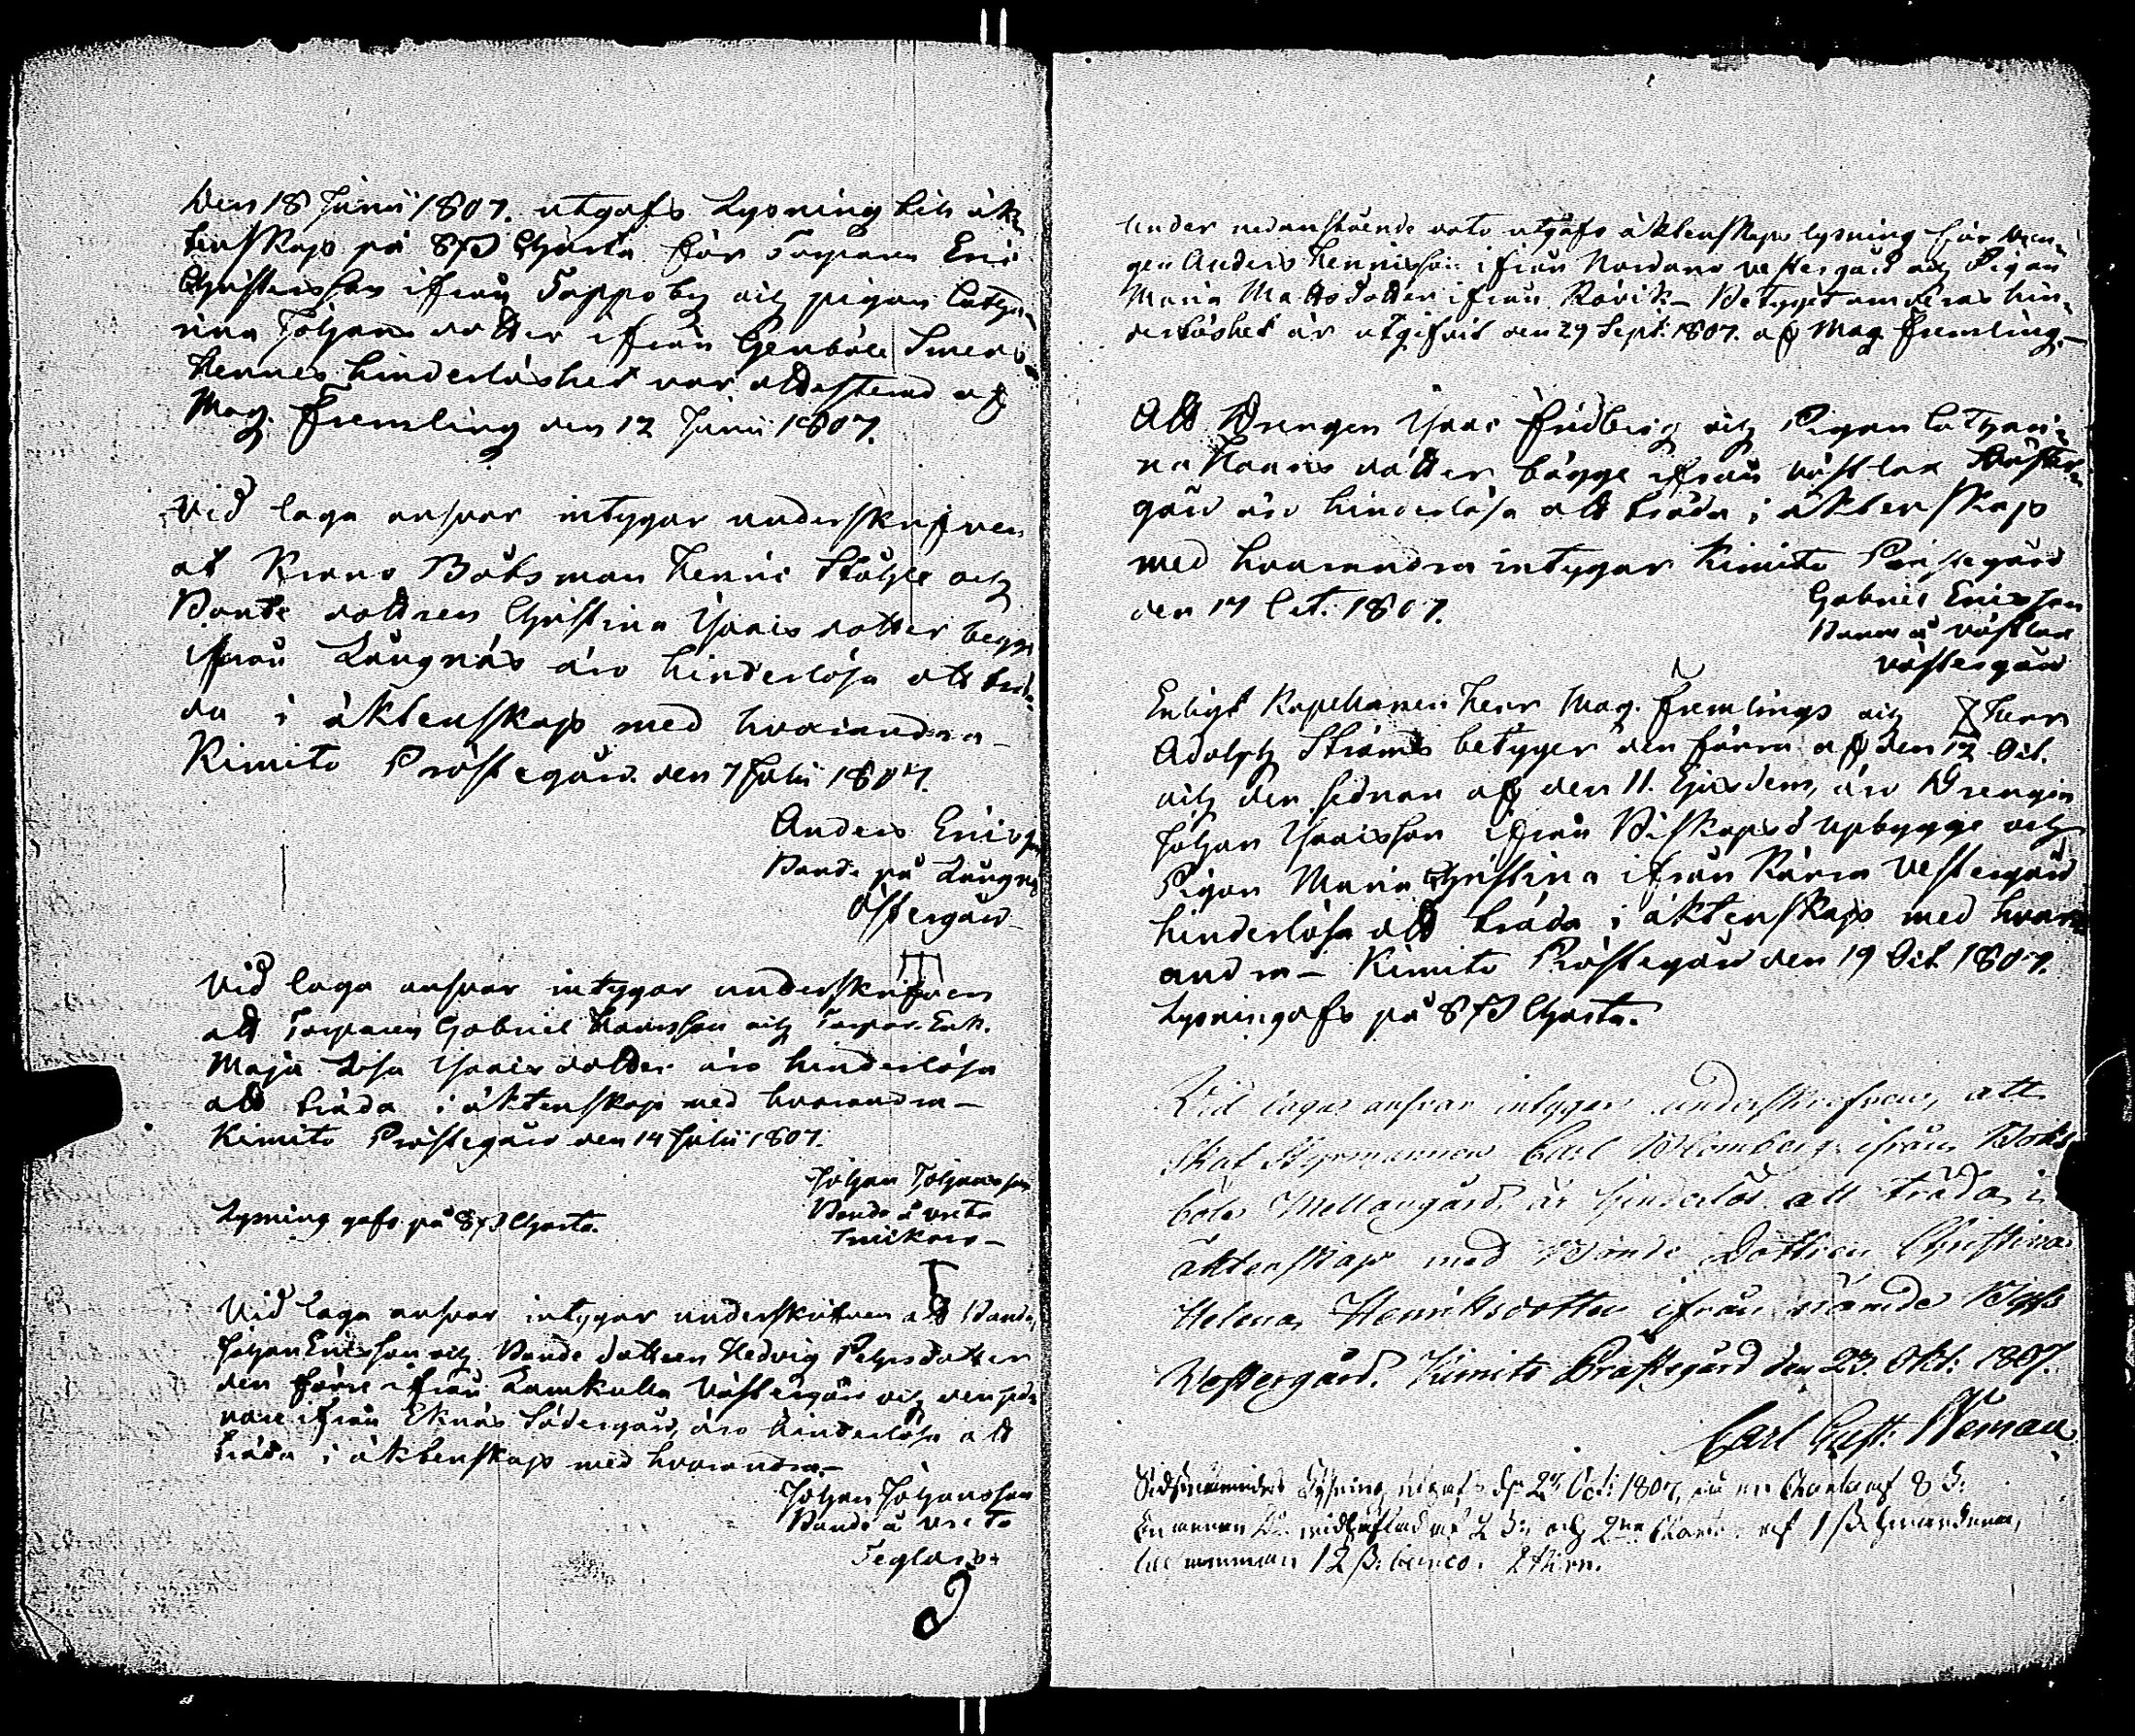 Den 18 Junii 1807. utgafs Lysning till äk-
tenskap på 8 ß Charta för Torparen Eric
Christersson ifrån Toppoby och pigan Catha-
rina Johansdotter ifrån Genböle
Hennes hinderlöshet var attesterad af
Mag. Fremling den 12 Junii 1807.
Vid laga ansvar intygar underskrifven
at Krono Båtsman Henric Ståhle och
Bonde dottren Christina Isaacs dotter begge
ifrån Långnäs äro hinderlösa att trä-
da i äktenskap med hvarandra -
Kimito Prästegård den 7 Julii 1807.
Anders Ericsson
Bonde på Långnäs
Östergård
Vid laga ansvar intygar underskrifven
att Torparen Gabriel Hansson och Torpar Enk.
Maja Lisa Isaacs dotter äro hinderlösa
att träda i äktenskap med hvarandra -
Kimito Prästegård den 14 Julii 1807.
Johan Johansson
Lysning gafs på 8 ß Charta. Bonde å vreta
Vid laga ansvar intygar underskrifven att Bonden
Johan Ericsson och Bonde dottren Hedvig Pehrsdotter
den förre ifrån Lamkulla Västergård och den sed-
nare ifrån Eknäs Södergård, äro hinderlösa att
träda i äktenskap med hvarandra -
Johan Johansson
Bonde å Vreta
Under nedanstående dato utgafs äktenskaps lysning för Drän-
gen Anders Henricsson ifrån Nordanå vestergård och Pigan
Maria Matts dotter ifrån Rövik - Betyget om deras hin-
derlöshet är utgifvit den 29 Sept. 1807. af Mag. Fremling -
Att Drengen Isaac Fridberg och Pigan Cathari-
na Hans dotter, bägge ifrån Västlax Väster-
gård äro hinderlösa att träda i äktenskap
med hvarandra intygar Kimito Prästegård
den 17 Oct. 1807. Gabriel Ericsson
Bonde å Västlax
Västergård
Enligt Kapellanen Herr Mag. Fremlings och Herr
Adolph Ströms betyger den förra af den 12 Oct.
och den sednare af den 11. Ejusdem, äro Drengen
Johan Isaacsson ifrån Biskopsö Upbygge och
Pigan Maria Christina ifrån Kärra Vestergård
hinderlösa att träda i äktenskap med hvar-
andra - Kimito Prästegård den 19 Oct 1807.
Lysning gafs på 8 ß Charta.
Vid lagas ansvar intygar underskrifven, att
Skat Styrmannen Carl Blomberg ifrån Boks-
böle Mellangård är hinderlös att träda i
äktenskap med Bonde Dottren Christina
Helena Henriksdotter ifrån nämde
Westergård. Kimito Prästegård den 23. Okt: 1807.
Carl Gust: Weman
Lysning utgafs d. 27 Oct: 1807, på en Charta af 8 ß.